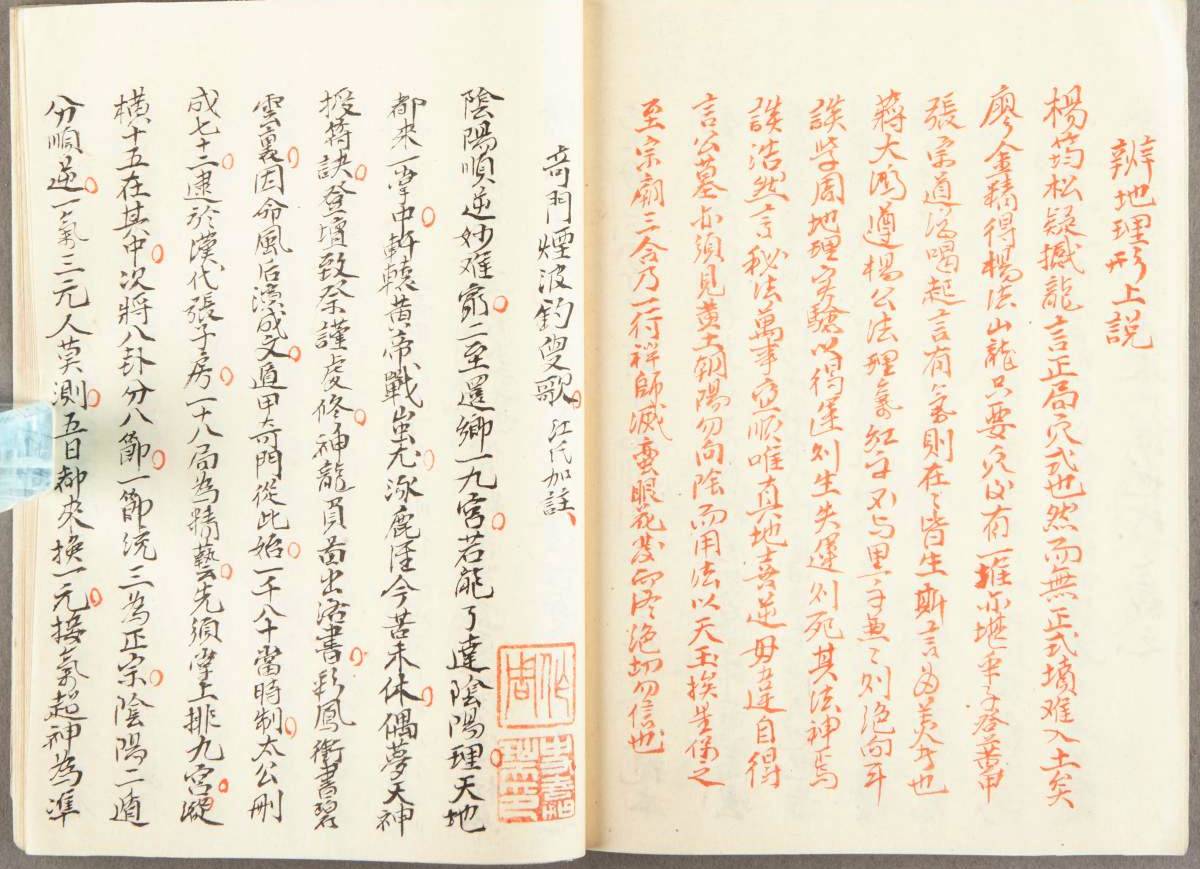 辨地理形上説
楊筠松疑撼龍言正局穴式也然而無正式墳难入土矣
廖金精得楊法山龍只要穴必有一推亦堪
張宗道泻喝起言有氣則在々皆生斯言為美者也
蔣大鴻遵楊公法理氣紅字
談學周地理实驗以得運则生失運则死其法神焉
談浩然言秘法萬事应順唯真地喜逆毋违自得
言公墓亦須見黄土朝陽勿向陰而用法以天玉挨星保之
至宗廟三合乃一行禅師滅蛮眼花落切勿信也
奇門煙波釣叟歌 江氏加註
陰陽順逆妙难窮二至還鄉一九宮若能了達陰陽理天地
都來一掌中軒轅黄帝戰蚩尤涿鹿經今苦未休偶夢天神
授符訣登壇致祭謹虔修神龍負啚出洛書彩鳳衔書碧
雲裏因命風后演成文遁甲奇門從此始一千八十當時制太公刪
成七十二逮於漢代張子房一十八局為精藝先須掌上排九宮縱
横十五在其中次將八卦分八節一節統三為正宗陰陽二遁
分順逆一氣三元人莫測五日都來换一元接氣超神為準